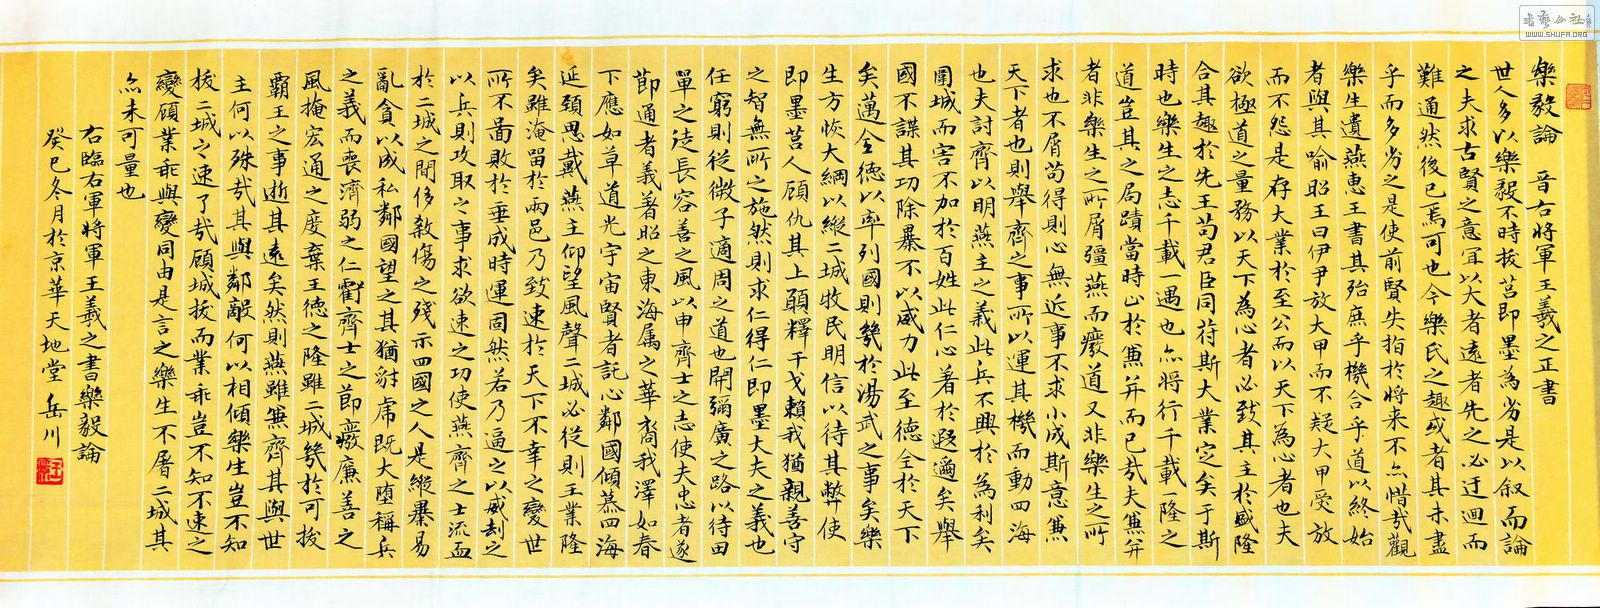 樂毅論　晉右將軍王羲之正書
世人多以樂毅不時拔莒即墨為劣是以叙而論
之夫求古賢之意宜以大者遠者先之必迂迴而
難通然後已焉可也今樂氏之趣或者其未盡
乎而多劣之是使前賢失指於將来不亦惜哉觀
樂生遺燕惠王書其殆庶乎機合乎道以終始
者與其喻昭王曰伊尹放大甲而不疑大甲受放
而不怨是存大業於至公而以天下為心者也夫
欲極道之量務以天下為心者必致其主於盛隆
合其趣於先王苟君臣同苻斯大業定矣于斯
時也樂生之志千載一遇也亦將行千載一隆之
道豈其之局蹟當時止於兼并而已哉夫兼并
者非樂生之所屑彊燕而廢道又非樂生之所
求也不屑苟得則心無近事不求小成斯意兼
天下者也則舉齊之事所以運其機而動四海
也夫討齊以明燕主之義此兵不興於為利矣
圍城而害不加於百姓此仁心著於遐邇矣舉
國不謀其功除暴不以威力此至德全於天下
矣邁全德以率列國則幾於湯武之事矣樂
生方恢大綱以縱二城牧民明信以待其弊使
即墨莒人顧仇其上願釋干戈賴我猶親善守
之智無所之施然則求仁得仁即墨大夫之義也
任窮則從微子適周之道也開彌廣之路以待田
單之徒長容善之風以申齊士之志使夫忠者遂
節通者義著昭之東海属之華裔我澤如春
下應如草道光宇宙賢者託心鄰國傾慕四海
延頸思戴燕主仰望風聲二城必從則王業隆
矣雖淹留於兩邑乃致速於天下不幸之變世
所不啚敗於垂成時運固然若乃逼之以威劫之
以兵則攻取之事求欲速之功使燕齊之士流血
於二城之間侈敹傷之殘示四國之人是縱暴易
亂貪以成私鄰國望之其猶豺虎既大墮稱兵
之義而喪濟弱之仁虧齊士之節廢廉善之
風掩宏通之度棄王德之隆雖二城幾於可拔
霸王之事逝其遠矣然則燕雖兼齊其與世
主何以殊哉其與鄰敵何以相傾樂生豈不知
拔二城之速了哉顧城拔而業乖豈不知不速之
變顧業乖與變同由是言之樂生不屠二城其
亦未可量也
右臨右軍將軍王羲之書樂毅論
癸巳冬月於京華天地堂　岳川
書藝公社
WWW.SHUFA.ORG